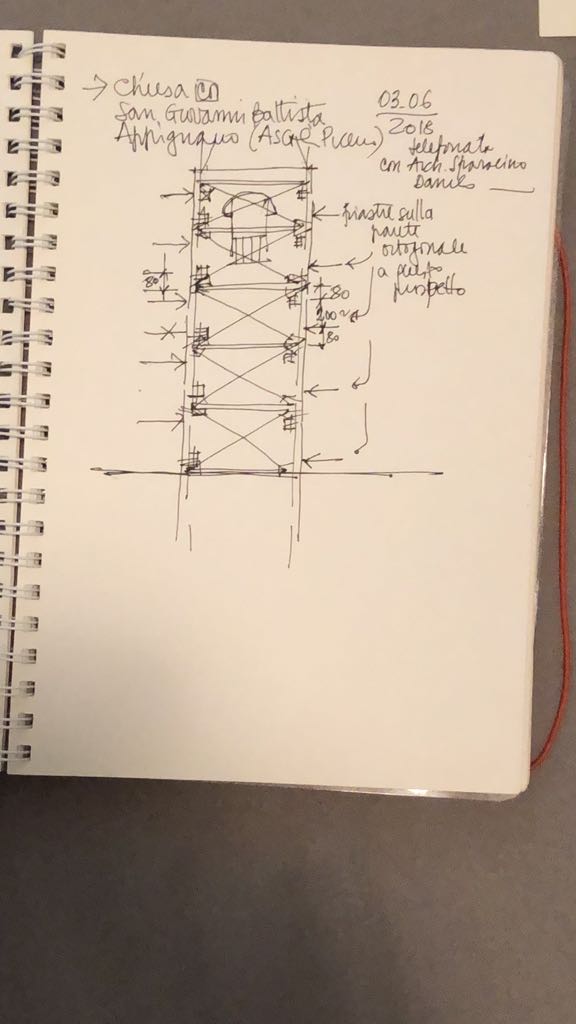 → Chiesa
San Giovanni Battista
Appignano (Ascoli Piceno)
03-06
2018
telefonata
con Arch. Sparacino
Danilo
piastre sulla
parete
ortogonale
a questo
prospetto
80
80
200
80